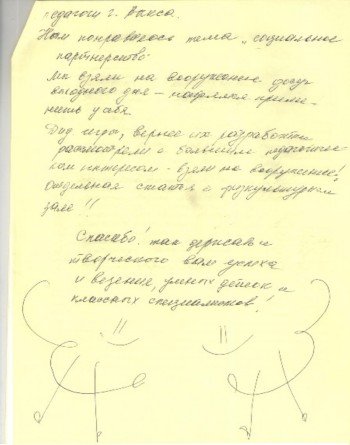 педагоги г. Выкса.
Нам понравилось тема „социальное
партнерство.
Мы взяли на вооружение досуг
выходного дня – надеемся приме-
нить у себя.
Дид. игры, вернее их разработки
рассмотрели с большим педагогичес-
ким интересом – взяли на вооружение!
Отдельная статья о физкультурном
зале!!
Спасибо! так держать и
творческого вам успеха
и везения, умных деток и
классных специалистов!